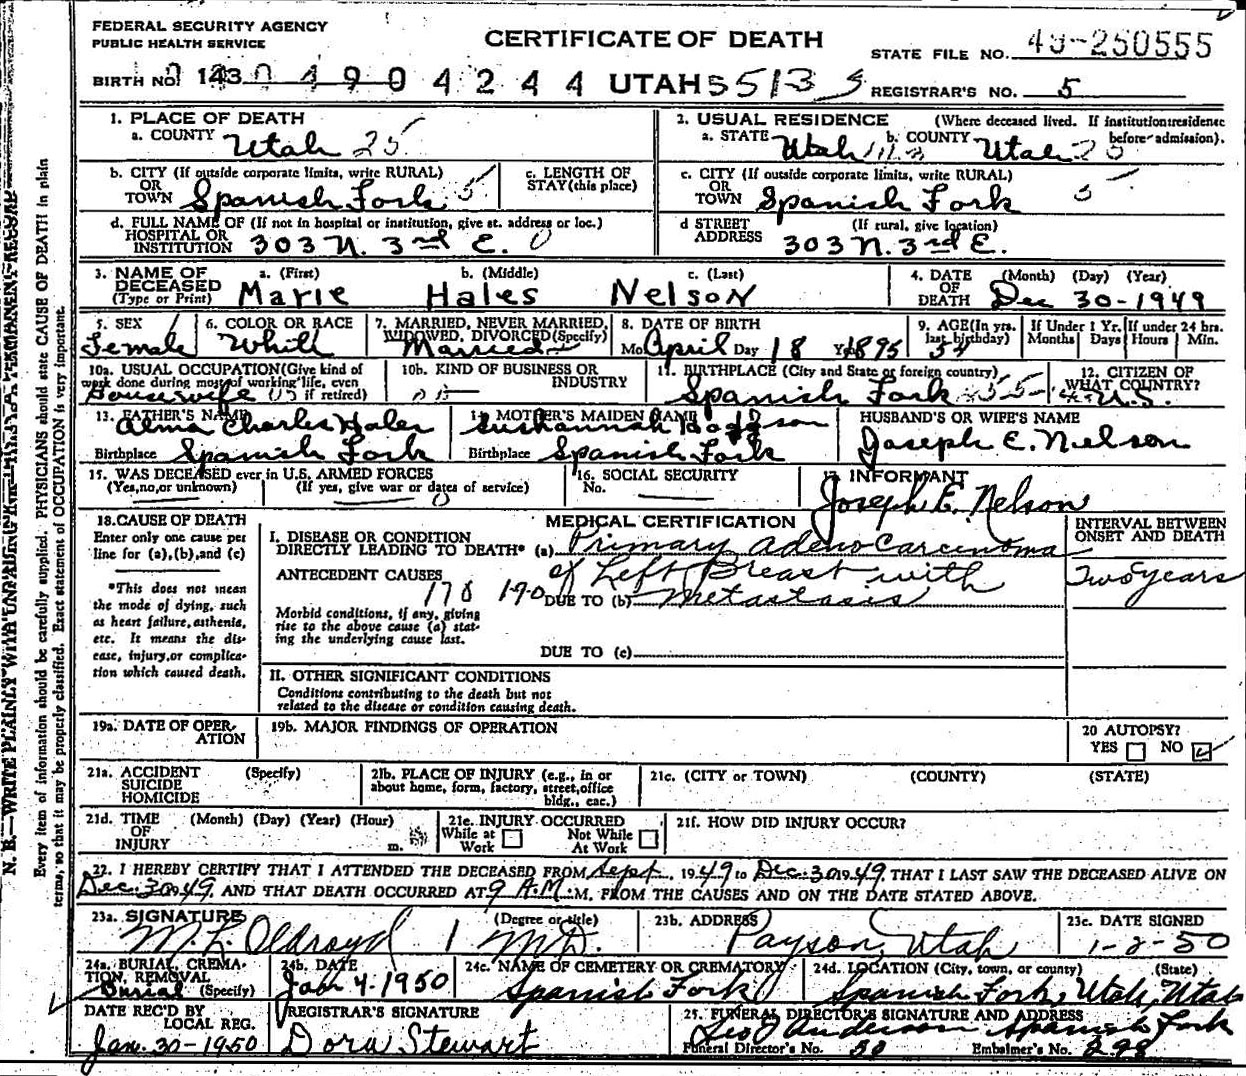 FEDERAL SECURITY AGENCY
PUBLIC HEALTH SERVICE
CERTIFICATE OF DEATH
STATE FILE NO. 49-250555
BIRTH NO. 143 0 4 9 0 4 2 4 4 UTAH 5513
REGISTRAR'S NO. 5
1. PLACE OF DEATH
a. COUNTY Utah 25
2. USUAL RESIDENCE (Where deceased lived. If institution: residence before admission).
a. STATE Utah b. COUNTY Utah
b. CITY (If outside corporate limits, write RURAL) OR TOWN Spanish Fork 5
c. LENGTH OF STAY (this place)
c. CITY (If outside corporate limits, write RURAL) OR TOWN Spanish Fork 5
d. FULL NAME OF (If not in hospital or institution, give st. address or loc.) HOSPITAL OR INSTITUTION 303 N. 3rd E. 0
d STREET ADDRESS (If rural, give location) 303 N. 3rd E.
3. NAME OF DECEASED (Type or Print)
a. (First) Marie b. (Middle) Hales c. (Last) Nelson
4. DATE OF DEATH (Month) (Day) (Year) Dec 30-1949
5. SEX Female
6. COLOR OR RACE White
7. MARRIED, NEVER MARRIED, WIDOWED, DIVORCED (Specify) Married
8. DATE OF BIRTH Mo. April Day 18 Yr. 1895
9. AGE (In yrs. last birthday) 54
If Under 1 Yr. Months Days
If under 24 hrs. Hours Min.
10a. USUAL OCCUPATION (Give kind of work done during most of working life, even if retired) Housewife
10b. KIND OF BUSINESS OR INDUSTRY
11. BIRTHPLACE (City and State or foreign country) Spanish Fork
12. CITIZEN OF WHAT COUNTRY? U.S.
13. FATHER'S NAME Alma Charles Hales
Birthplace Spanish Fork
14. MOTHER'S MAIDEN NAME Sushannah Hodgson
Birthplace Spanish Fork
HUSBAND'S OR WIFE'S NAME
Joseph E. Nelson
15. WAS DECEASED ever in U.S. ARMED FORCES
(Yes, no, or unknown) (If yes, give war or dates of service)
16. SOCIAL SECURITY
No.
17. INFORMANT
Joseph E. Nelson
18. CAUSE OF DEATH
Enter only one cause per
line for (a), (b), and (c)
*This does not mean
the mode of dying, such
as heart failure, asthenia,
etc. It means the dis-
ease, injury, or complica-
tion which caused death.
MEDICAL CERTIFICATION
I. DISEASE OR CONDITION
DIRECTLY LEADING TO DEATH* (a) Primary adeno carcinoma
of Left Breast with
ANTECEDENT CAUSES
170 DUE TO (b) metastasis
Morbid conditions, if any, giving
rise to the above cause (a) stat-
ing the underlying cause last.
DUE TO (c)
INTERVAL BETWEEN
ONSET AND DEATH
Two years
II. OTHER SIGNIFICANT CONDITIONS
Conditions contributing to the death but not
related to the disease or condition causing death.
19a. DATE OF OPER-
ATION
19b. MAJOR FINDINGS OF OPERATION
20 AUTOPSY?
YES NO
21a. ACCIDENT (Specify)
SUICIDE
HOMICIDE
21b. PLACE OF INJURY (e.g., in or
about home, form, factory, street, office
bldg., eac.)
21c. (CITY or TOWN) (COUNTY) (STATE)
21d. TIME (Month) (Day) (Year) (Hour)
OF
INJURY m.
21e. INJURY OCCURRED
While at Work Not While At Work
21f. HOW DID INJURY OCCUR?
22. I HEREBY CERTIFY THAT I ATTENDED THE DECEASED FROM Sept, 1949 to Dec. 30 1949, THAT I LAST SAW THE DECEASED ALIVE ON
Dec. 30 1949 AND THAT DEATH OCCURRED AT 9 A.M. M, FROM THE CAUSES AND ON THE DATE STATED ABOVE.
23a. SIGNATURE (Degree or title)
M. L. Oldroyd M.D.
23b. ADDRESS
Payson, Utah
23c. DATE SIGNED
1-2-50
24a. BURIAL, CREMA-
TION, REMOVAL
Burial (Specify)
24b. DATE
Jan 4-1950
24c. NAME OF CEMETERY OR CREMATORY
Spanish Fork
24d. LOCATION (City, town, or county) (State)
Spanish Fork, Utah, Utah
DATE REC'D BY
LOCAL REG.
Jan. 30-1950
REGISTRAR'S SIGNATURE
Dora Stewart
25. FUNERAL DIRECTOR'S SIGNATURE AND ADDRESS
Anderson Spanish Fork
Funeral Director's No. 50 Embalmer's No. 298
N. B.—WRITE PLAINLY WITH UNFADING INK—THIS IS A PERMANENT RECORD
Every item of information should be carefully supplied. PHYSICIANS should state CAUSE OF DEATH in plain
terms, so that it may be properly classified. Exact statement of OCCUPATION is very important.